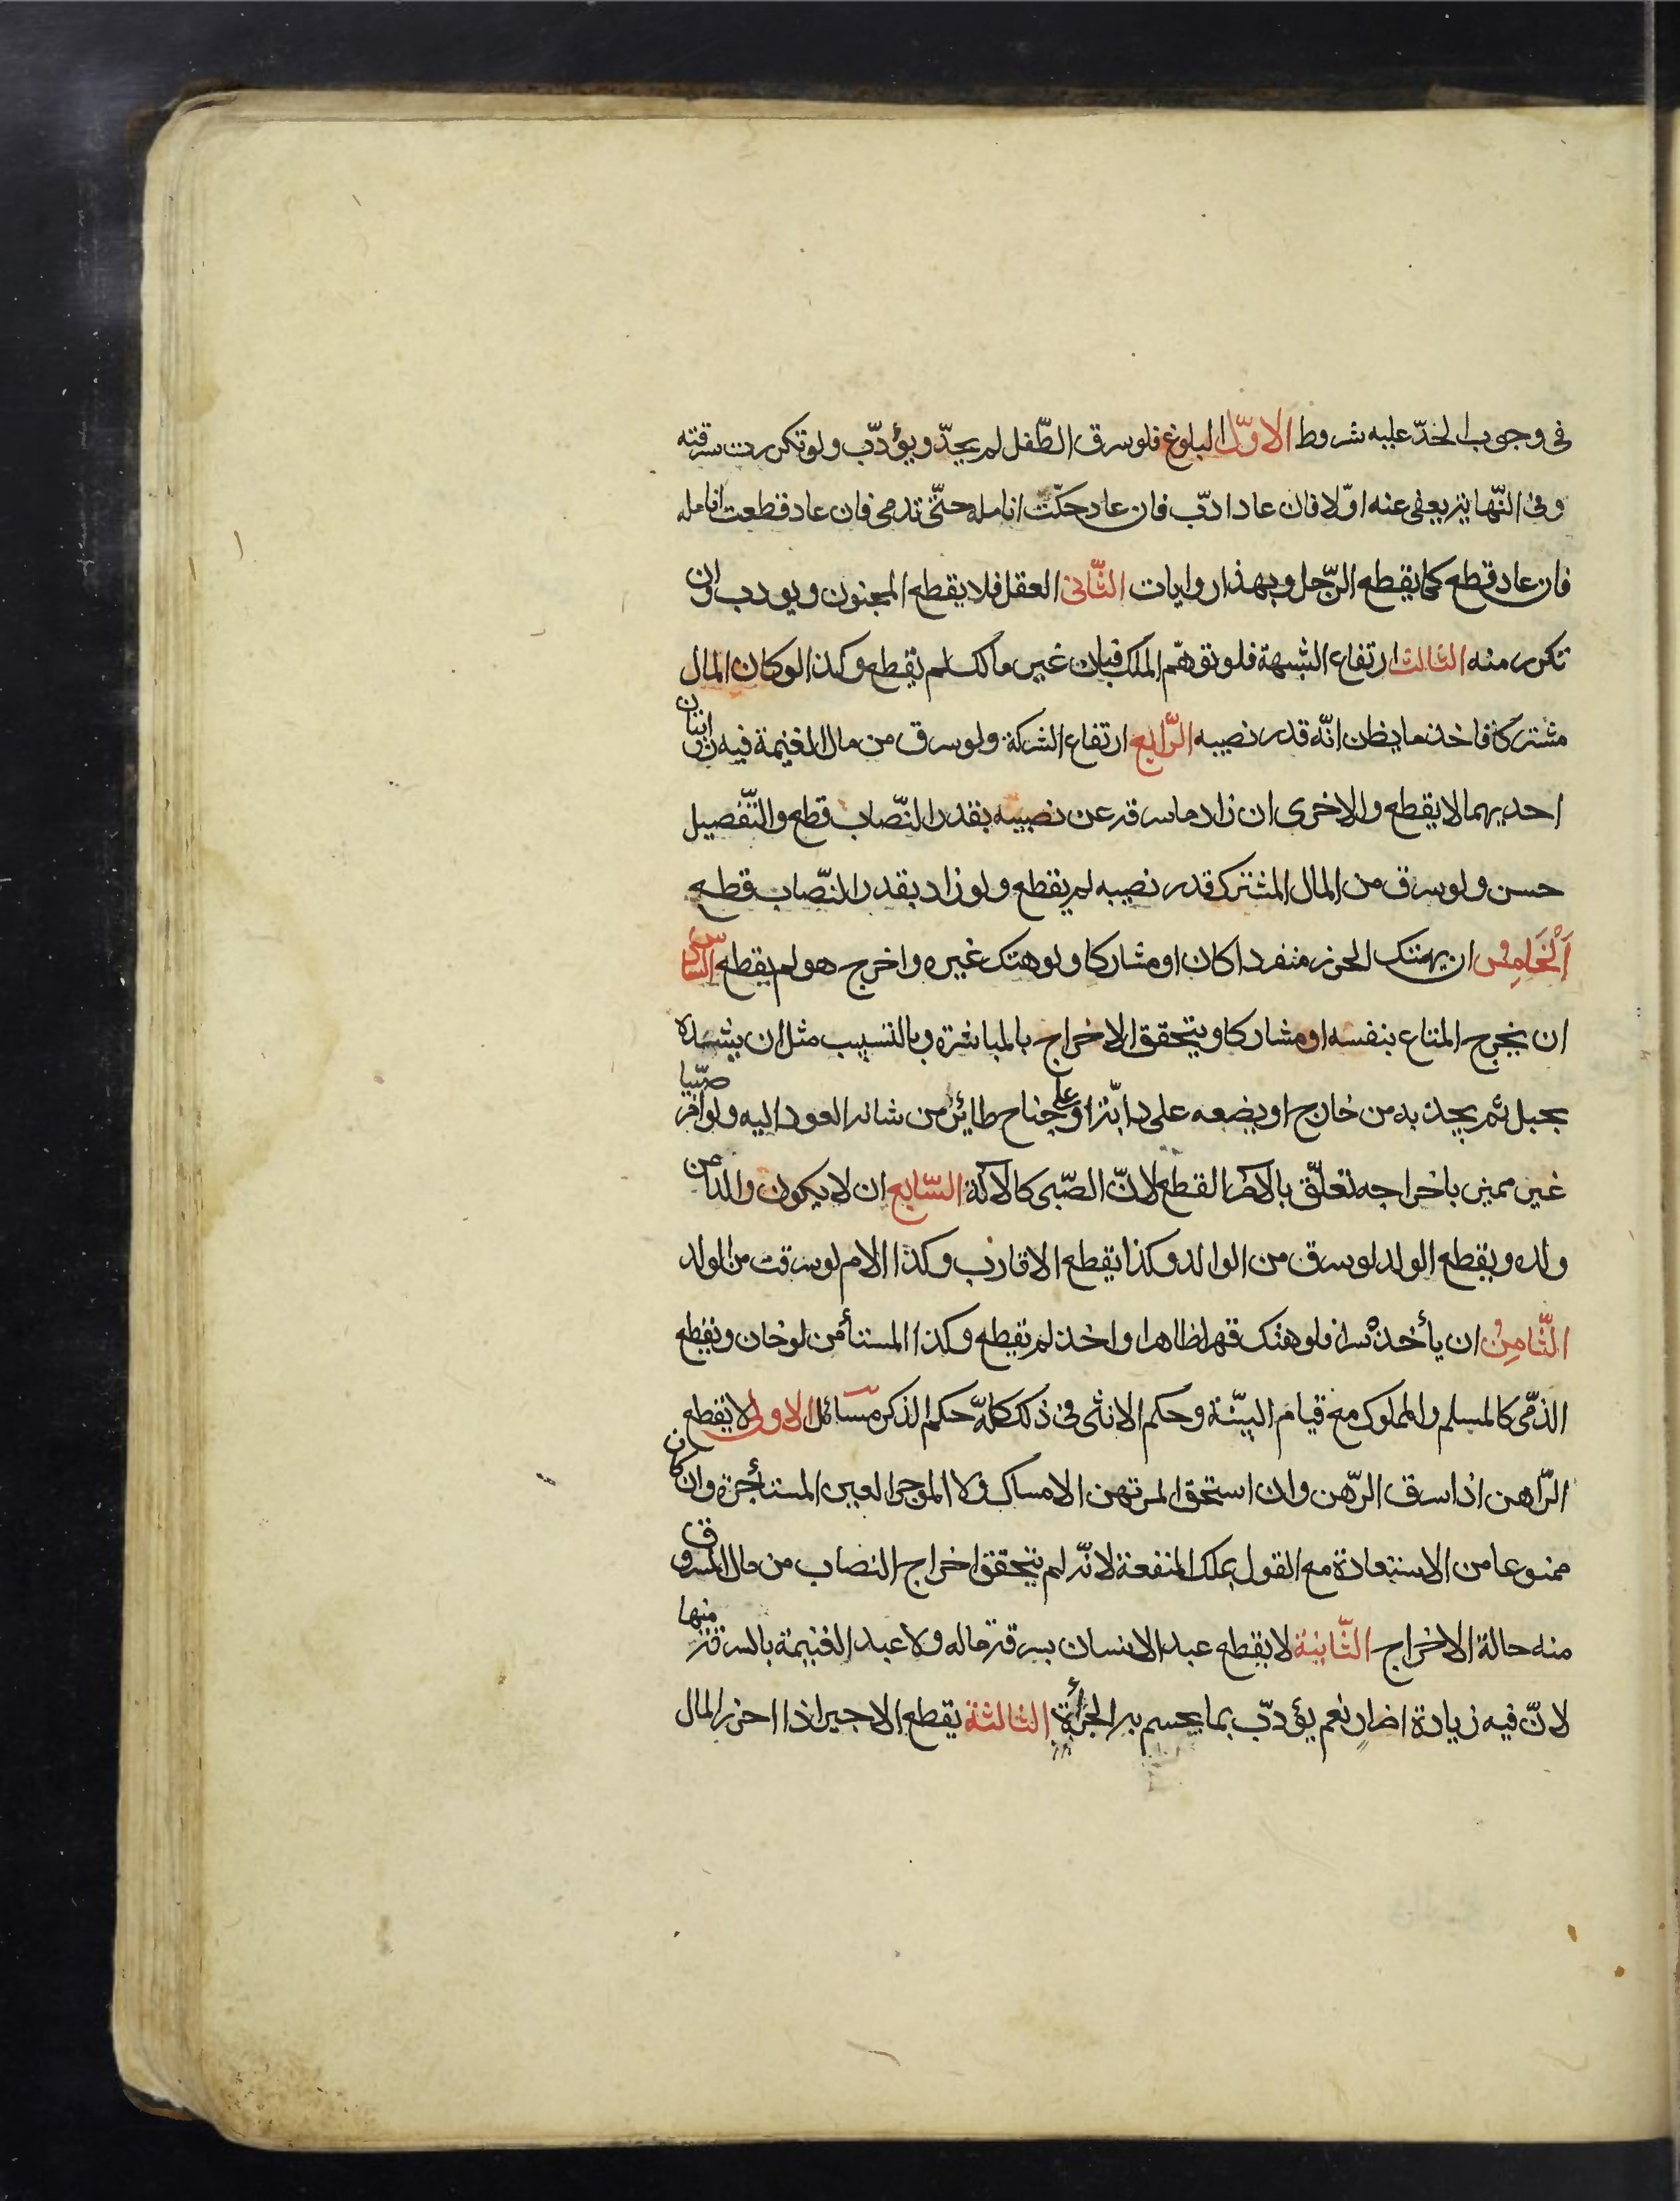 فى وجوب الحدّ عليه شروط الاوّل البلوغ فلو سرق الطّفل لم يحدّ ويؤدّب ولو تكررت سرقته
وفى النّهاية يعفى عنه اوّلا فان عاد ادّب فان عاد حكّت انامله حتّى تدمى فان عاد قطعت انامله
فان عاد قطع كما يقطع الرّجل وبهذا روايات الثّانى العقل فلا يقطع المجنون ويودب وان
تكرر منه الثالث ارتفاع الشبهة فلو توهّم الملك فبان غير مالك لم يقطع وكذا لو كان المال
مشتركا فاخذ ما يظن انّه قدر نصيبه الرّابع ارتفاع الشركة ولو سرق من مال الغنيمة فيه روايتان
احديهما لا يقطع والاخرى ان زاد ما سرقه عن نصيبه بقدر النّصاب قطع والتّفصيل
حسن ولو سرق من المال المشترك قدر نصيبه لم يقطع ولو زاد بقدر النّصاب قطع
اَلْخَامِسُ ان يهتك الحرز منفردا كان او مشاركا ولو هتك غيره واخرج هو لم يقطع السّادس
ان يخرج المتاع بنفسه او مشاركا ويتحقق الاخراج بالمباشرة وبالتسبيب مثل ان يشده
بحبل ثم يجذبه من خارج او يضعه على دابّة او على جناح طائر من شانه العود اليه ولو امر صبّيا
غير مميز باخراجه تعلّق بالامر القطع لانّ الصّبى كالآلة السّابع ان لا يكون والدا من
ولده ويقطع الولد لو سرق من الوالد وكذا يقطع الاقارب وكذا الام لو سرقت من الولد
الثّامِنُ ان يأخذه سرا فلو هتك قهرا ظاهرا واخذ لم يقطع وكذا المستأمن لو خان ويقطع
الذمّى كالمسلم والمملوك مع قيام البيّنة وحكم الانثى فى ذلك كلّه حكم الذكر مسائل الاولى لا يقطع
الرّاهن اذا سرق الرّهن وان استحق المرتهن الامساك ولا الموجر العين المستأجرة وان كان
ممنوعا من الاستعادة مع القول بملك المنفعة لانّه لم يتحقق اخراج النصاب من مال المسروق
منه حالة الاخراج الثّانية لا يقطع عبد الانسان بسرقة ماله ولا عبد الغنيمة بالسرقة منها
لانّ فيه زيادة اضرار نعم يؤدّب بما يحسم به الجرأة الثالثة يقطع الاجير اذا احرز المال